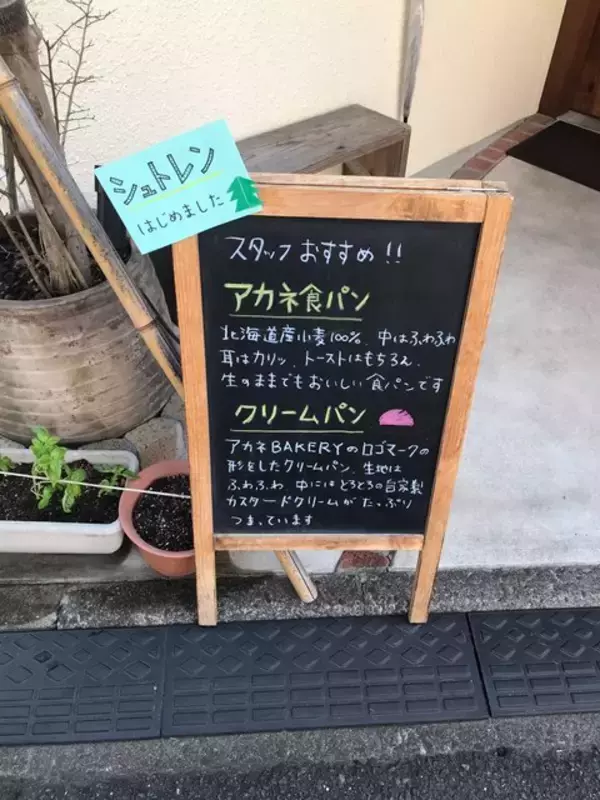 シュトレン
はじめました
スタッフおすすめ!!
アカネ食パン
北海道産小麦100%、中はふわふわ
耳はカリッ、トーストはもちろん、
生のままでもおいしい食パンです
クリームパン
アカネBAKERYのロゴマークの
形をしたクリームパン、生地は
ふわふわ、中にはとろとろの自家製
カスタードクリームがたっぷり
つまっています